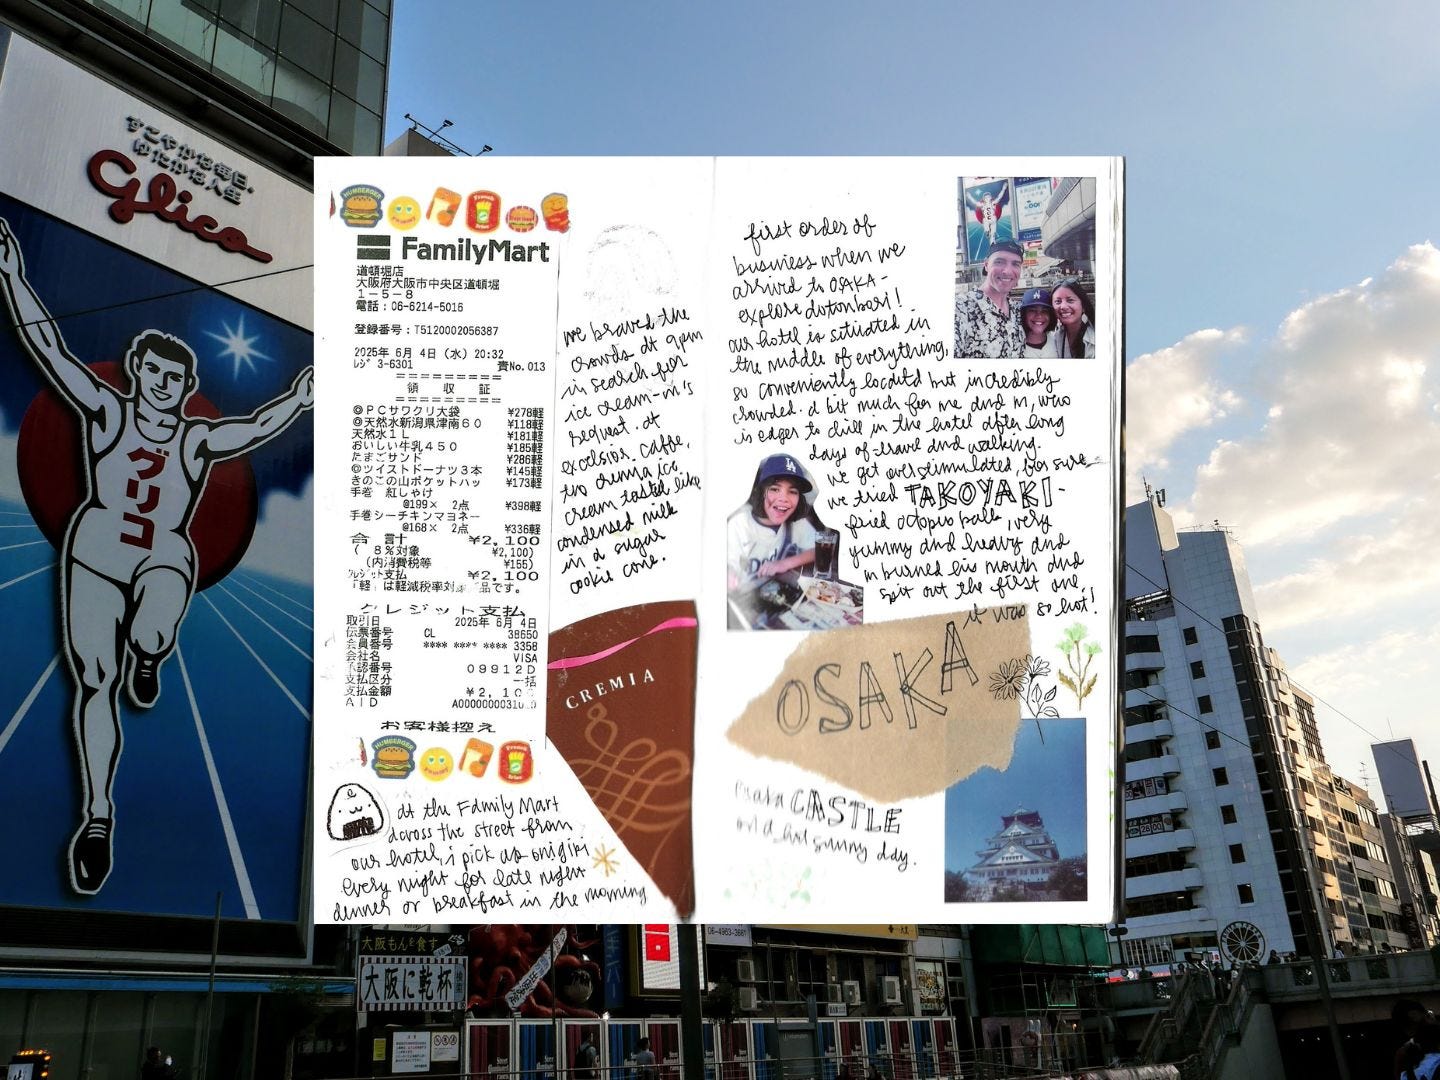 すこやかな毎日、
ゆたかな人生
glico
グリコ
HUMBERGER
French fries
FamilyMart
道頓堀店
大阪府大阪市中央区道頓堀
1-5-8
電話:06-6214-5016
登録番号:T5120002056387
2025年 6月 4日(水)20:32
レジ 3-6301 責No.013
領 収 証
◎PCサワクリ大袋 ¥278軽
◎天然水新潟県津南60 ¥118軽
天然水1L ¥181軽
おいしい牛乳450 ¥185軽
たまごサンド ¥286軽
◎ツイストドーナツ3本 ¥145軽
きのこの山ポケットハッ ¥173軽
手巻 紅しゃけ
@199× 2点 ¥398軽
手巻シーチキンマヨネー
@168× 2点 ¥336軽
合 計 ¥2,100
( 8%対象 ¥2,100)
(内消費税等 ¥155)
クレジット支払 ¥2,100
「軽」は軽減税率対象 品です。
クレジット支払
取引日 2025年 6月 4日
伝票番号 CL 38650
会員番号 **** **** **** 3358
会社名 VISA
承認番号 09912D
支払区分 一括
支払金額 ¥2,10
AID
お客様控え
HUMBERGER
French fries
at the Family Mart
across the street from
our hotel, i pick up onigiri
every night for late night
dinner or breakfast in the morning
we braved the
crowds at 9pm
in search for
ice cream-m's
request. at
excelsior. caffe,
two crema ice
cream tasted like
condensed milk
in a sugar
cookie cone.
CREMIA
first order of
business when we
arrived to OSAKA-
explore dotonbori!
our hotel is situated in
the middle of everything,
so conveniently located but incredibly
crowded. a bit much for me and m, who
is edger to chill in the hotel after long
days of travel and walking.
we get overstimulated, for sure
we tried TAKOYAKI-
fried octopus balls, very
yummy and heavy and
m burned his mouth and
spit out the first one,
it was so hot!
OSAKA
osaka CASTLE
on a hot sunny day.
大阪もんを食す
大阪に乾杯
06-4963-3661